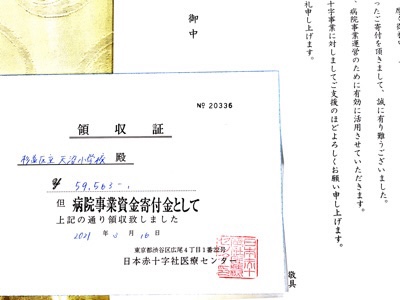 御中
ったご寄付を頂きまして、誠に有り難うございました。
、病院事業運営のために有効に活用させていただきます。
十字事業に対しましてご支援のほどよろしくお願い申し上げます。
礼申し上げます。
敬具
Nº 20336
領収証
杉並区立 天沼小学校 殿
¥ 59,565-
但 病院事業資金寄付金として
上記の通り領収致しました
2021年 3月 16日
東京都渋谷区広尾4丁目1番22号
日本赤十字社医療センター